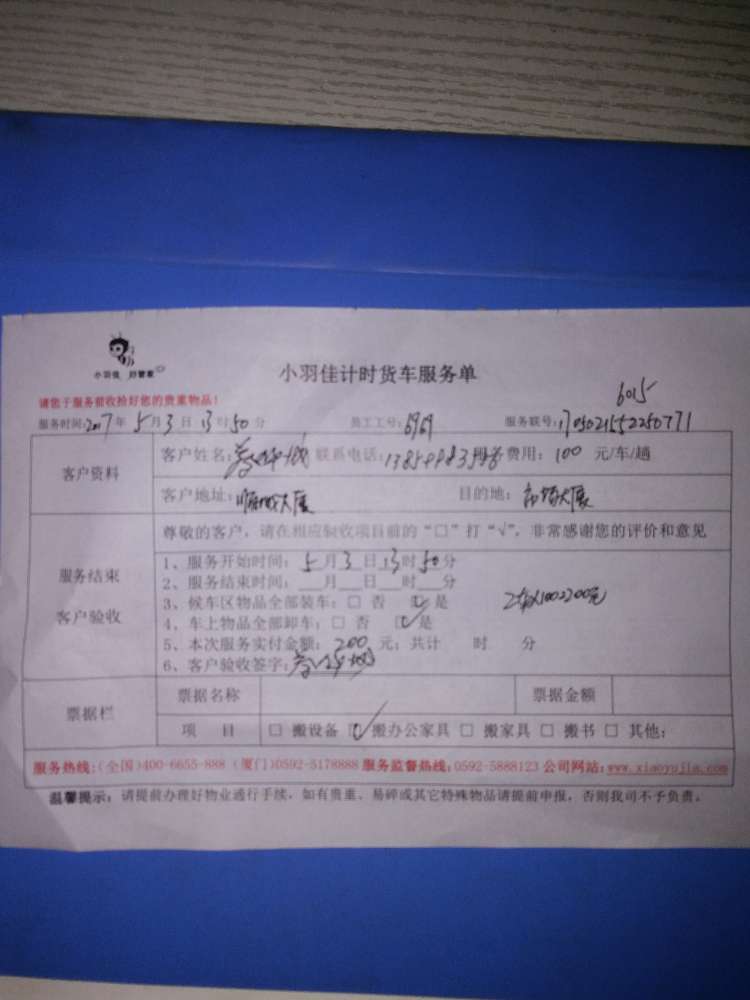 小羽佳 好管家
小羽佳计时货车服务单
6015
请您于服务前收拾好您的贵重物品！
服务时间：2017年5月3日13时50分 员工工号：6969 服务联号：1705021552250771
客户资料
客户姓名： 联系电话： 服务费用：100 元/车/趟
客户地址： 目的地：
服务结束
客户验收
尊敬的客户，请在相应验收项目前的“□”打“√”，非常感谢您的评价和意见
1、服务开始时间：5月3日13时50分
2、服务结束时间：___月___日___时___分
3、候车区物品全部装车：□ 否 ☑ 是
4、车上物品全部卸车：□ 否 ☑ 是
5、本次服务实付金额：200 元；共计 时 分
6、客户验收签字：
票据栏
票据名称 票据金额
项 目 □ 搬设备 ☑ 搬办公家具 □ 搬家具 □ 搬书 □ 其他：
服务热线：(全国)400-6655-888 (厦门)0592-5178888 服务监督热线：0592-5888123 公司网站：www.xiaoyujia.com
温馨提示：请提前办理好物业通行手续，如有贵重、易碎或其它特殊物品请提前申报，否则我司不予负责。